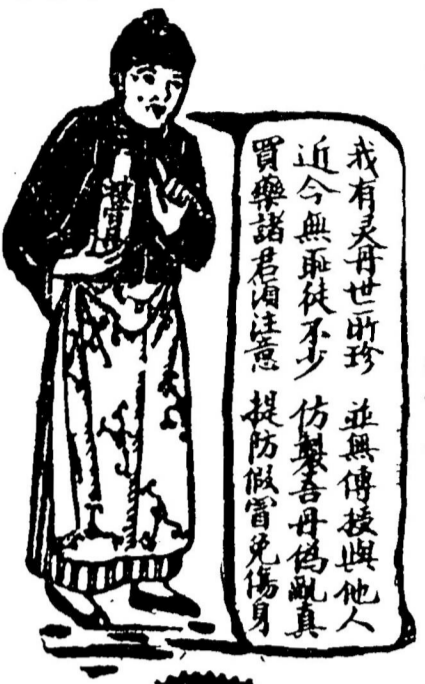 我有灵丹世所珍 並無傳授與他人
近今無恥徒不少 仿製吾丹偽亂真
買藥諸君須注意 提防假冒免傷身